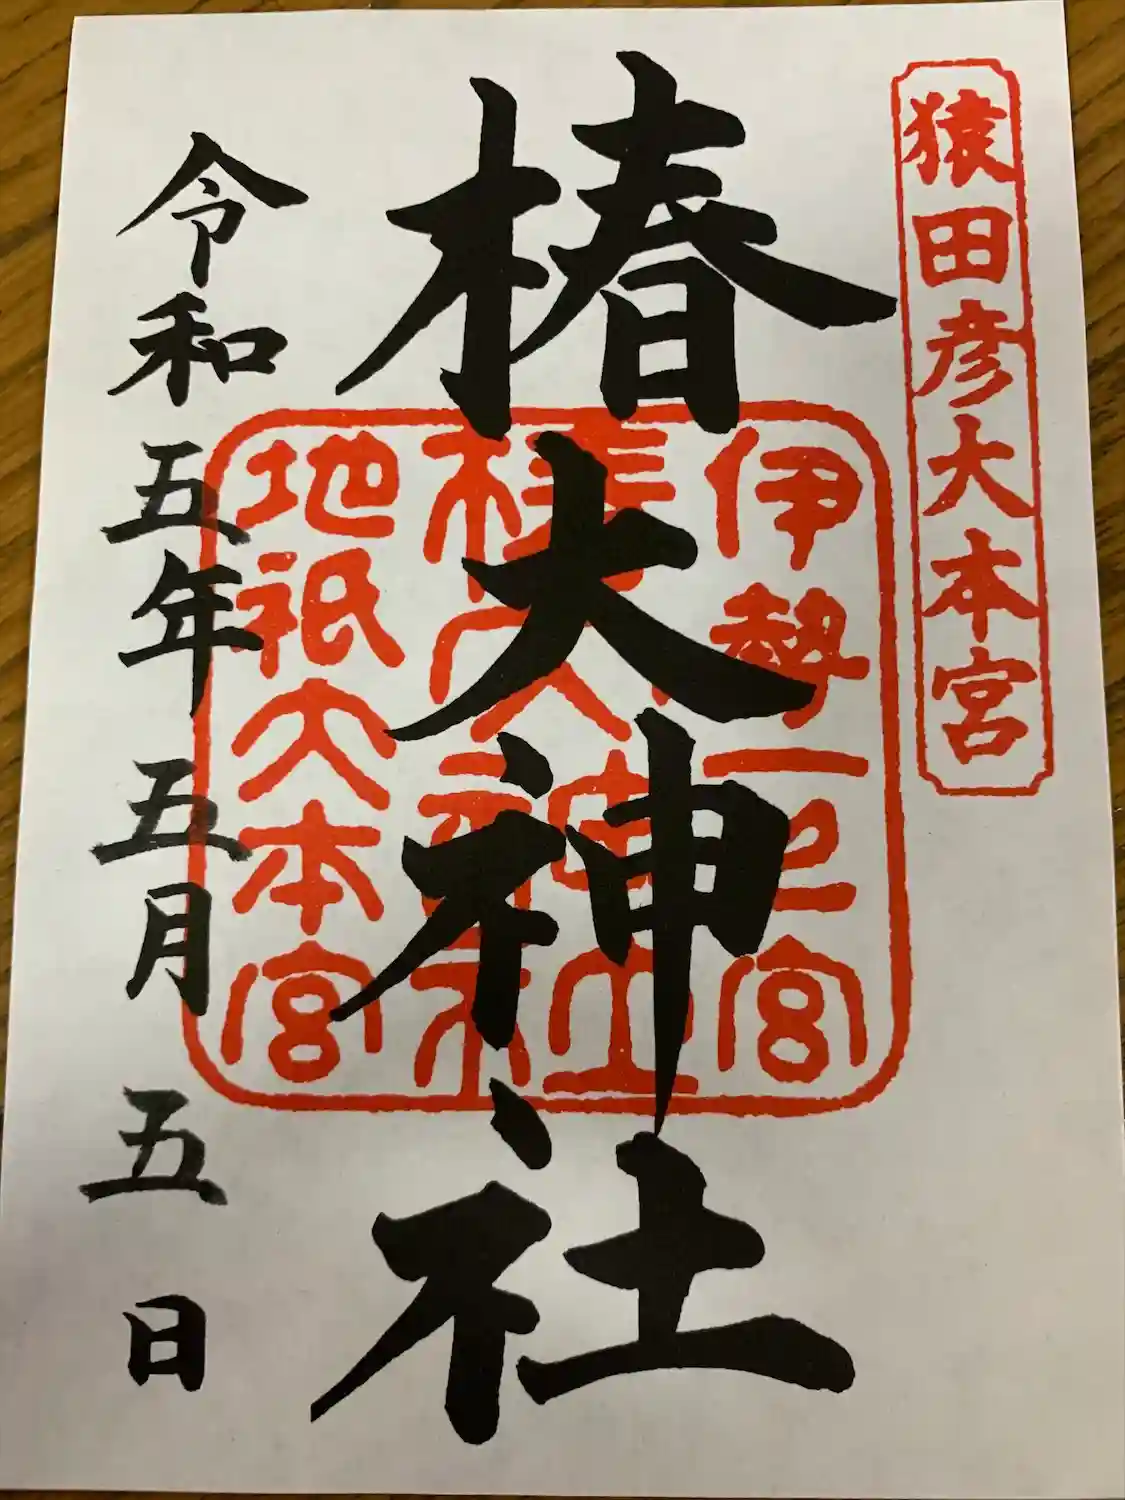 猿田彦大本宮
椿大神社
伊勢一之宮
椿大神社
地祇大本宮
令和五年五月五日